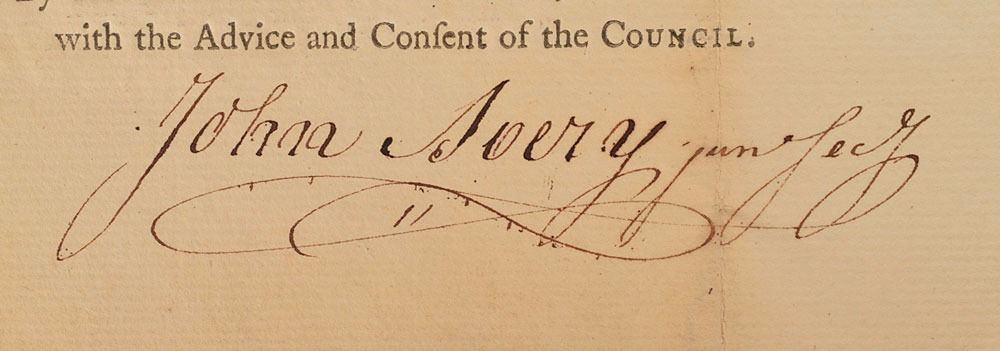 with the Advice and Conſent of the COUNCIL.
John Avery junr Secy